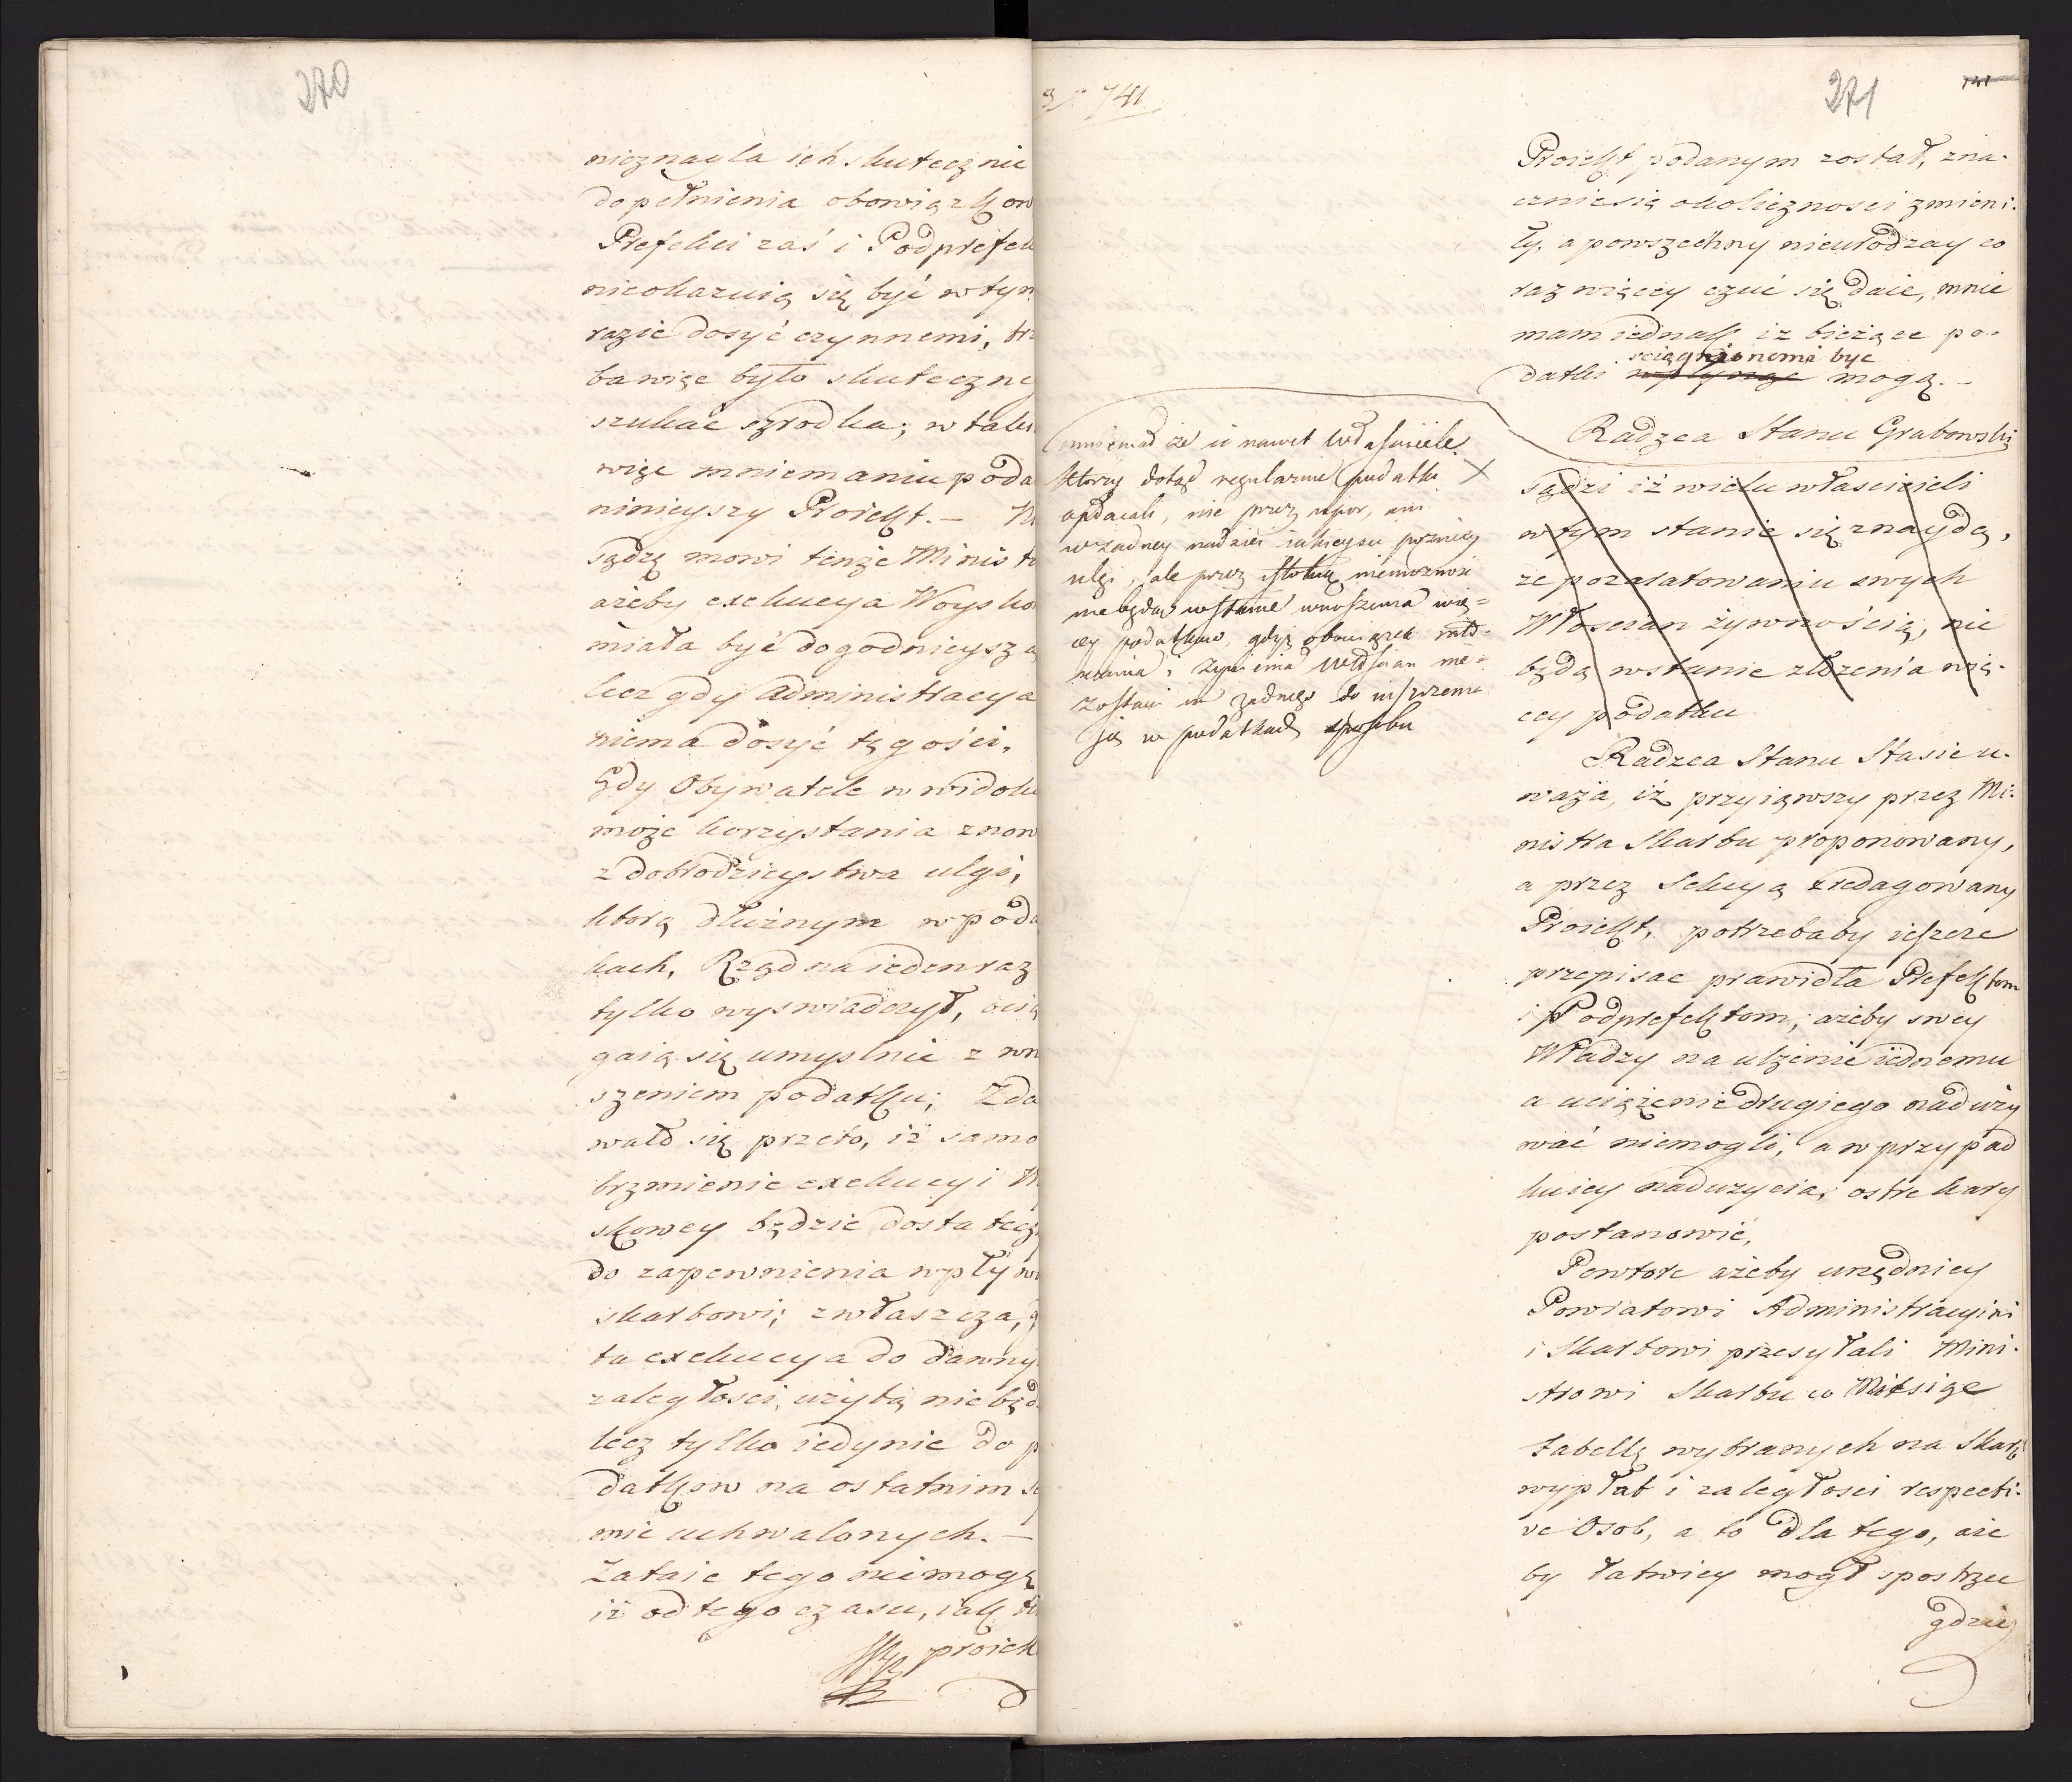 270
nieznagla ich skutecznie
dopełnienia obowiązkow
Prefekci zaś i Podprefek
nieokazuią się być w tym
razie dosyć czynnemi, trz
ba więc było skuteczne
szukać szrodka; w takie
więc mniemaniu poda
ninieyszy Proiekt. —
sądzę mowi tenże Ministe
ażeby exekucya Woysko
miała być dogodnieyszą
lecz gdy Administracya
niema dosyć tęgości,
Gdy Obywatele w widoku
może korzystania znow
z dobrodzieystwa ulgi,
ktorą dłużnym w poda
kach, Rząd na ieden raz
tylko wyswiadczył, ocią
gaią się umyslnie z wn
szeniem podatku; Zda
wało się przeto, iż samo
brzmienie exekucyi W
skowey będzie dostatecz
do zapewnienia wpływ
skarbowi; zwłaszcza, g
ta exekucya do dawny
zaległosci, użytą niebęd
lecz tylko iedynie do p
datkow na ostatnim se
mie uchwalonych. —
Zataic tego niemogę
iż od tego czasu, iak t
proiek
741
271
741
Proiekt podanym został, zna-
cznie się okolicznosci zmieni-
ły, a powszechny nieurodzay co
raz więcey czuć się daie, mnie
mam iednak iz bieżące po-
sciągnionemi byc
datki wplynąc mogą. —
Radzca Stanu Grabowski
mniemał że ii nawet Własciciele
ktorzy dotąd regularnie podatki
opłacali, nie przez upor, ani
w żadney nadziei iakieysci pozniey
ulgi, ale przez istotną niemoznosc
nie będą w stanie wnoszenia wię=
cey podatkow, gdyż obowiązek rato=
wania i żywienia Włoscian nie=
zostawi im żadnego do uiszczenia
się w podatkach sposobu
sądzi iż wielu włascicieli
w tym stanie się znaydą,
ze pozaratowaniu swych
Włoscian żywnością, nie
będą wstanie złożenia wię-
cey podatku
Radzca Stanu Stasic u-
waża, iż przyiąwszy przez Mi-
nistra Skarbu proponowany,
a przez Sekcyą zredagowany
Proiekt, potrzebaby ieszcze
przepisac prawidła Prefektom
i Podprefektom, ażeby swey
Władzy na ulżenie iednemu
a uciążenie drugiego naduży
wać niemogli, a w przypad
ku iey nadużycia, ostre kary
postanowić,
Powtore ażeby urzędnicy
Powiatowi Administracyini
i Skarbowi przesyłali Mini-
strowi Skarbu co Miesiąc
tabellę wybranych na Skarb
wypłat i zaległosci respecti-
ve Osob, a to dla tego, aże
by łatwiey mogł spostrzec
gdzie